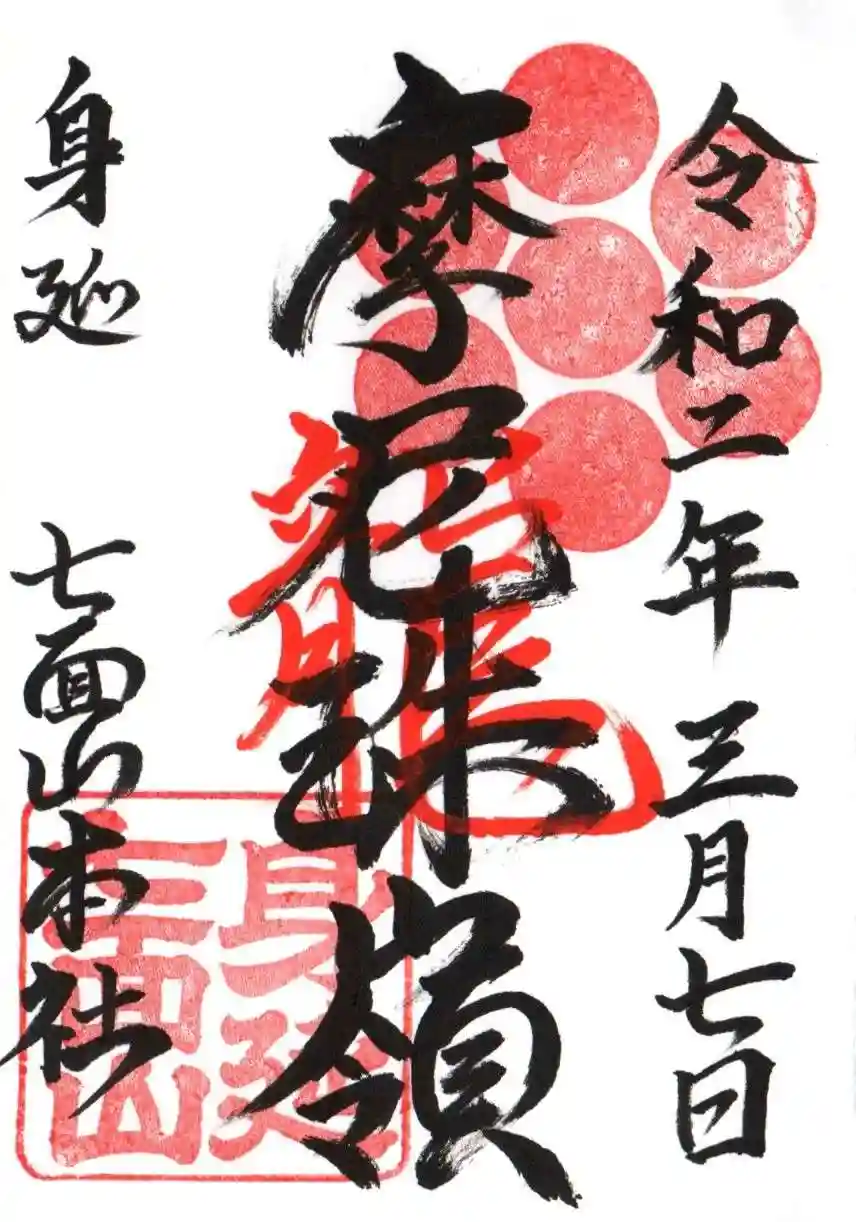 令和二年三月七日
摩尼珠嶺
身延 七面山本社
身延
七面山